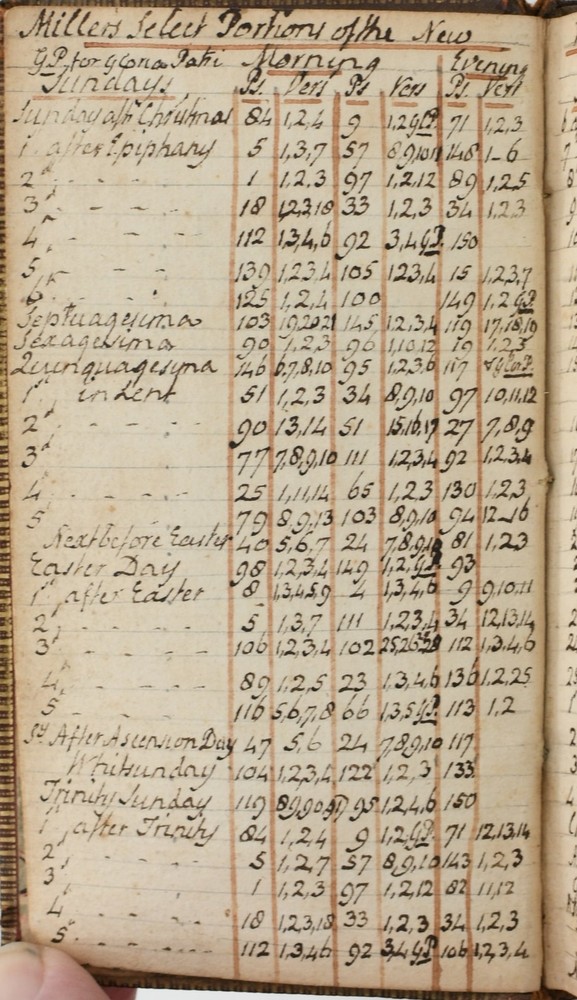 Millers Select Portions of the New
G.P. for Gloria Patri Morning Evening
Sundays Ps. Vers Ps Vers Ps. Vers
Sunday aft Christmas 84 1,2,4 9 1,2 G.P. 71 1,2,3
1st after Epiphany 5 1,3,7 57 8,9,10,11 148 1-6
2d - - - 1 1,2,3 97 1,2,12 89 1,2,5
3d - - - 18 1,2,3,18 33 1,2,3 34 1,2,3
4 - - - 112 1,3,4,6 92 3,4 G.P. 150
5 - - - 139 1,2,3,4 105 1,2,3,4 15 1,2,3,7
6 125 1,2,4 100 149 1,2 G.P.
Septuagesima 103 19,20,21 145 1,2,3,4 119 17,18,10
Sexagesima 90 1,2,3 96 1,10,12 19 1,2,3
Quinquagesima 146 6,7,8,10 95 1,2,3,6 117 & Glo. P.
1st in Lent 51 1,2,3 34 8,9,10 97 10,11,12
2d - - - 90 13,14 51 15,16,17 27 7,8,9
3d 77 7,8,9,10 111 1,2,3,4 92 1,2,3,4
4 - - - 25 1,11,14 65 1,2,3 130 1,2,3
5 79 8,9,13 103 8,9,10 94 12-16
Next before Easter 40 5,6,7 24 7,8,9,10 81 1,2,3
Easter Day 98 1,2,3,4 149 1,2 G.P. 93
1st after Easter 8 1,3,4,5,9 4 1,3,4,6 9 9,10,11
2d - - - 5 1,3,7 111 1,2,3,4 34 12,13,14
3d - - - 106 1,2,3,4 102 25,26 112 1,3,4,6
4 - - - 89 1,2,5 23 1,3,4,6 136 1,2,25
5 - - - 116 5,6,7,8 66 1,3,5 G.P. 113 1,2
Sy After Ascension Day 47 5,6 24 7,8,9,10 117
Whitsunday 104 1,2,3,4 122 1,2,3 133
Trinity Sunday 119 89,90,91 95 1,2,4,6 150
1st after Trinity 84 1,2,4 9 1,2 G.P. 71 12,13,14
2d - - - 5 1,2,7 57 8,9,10 143 1,2,3
3 - - - 1 1,2,3 97 1,2,12 82 11,12
4 - - - 18 1,2,3,18 33 1,2,3 34 1,2,3
5 - - - 112 1,3,4,6 92 3,4 G.P. 106 1,2,3,4